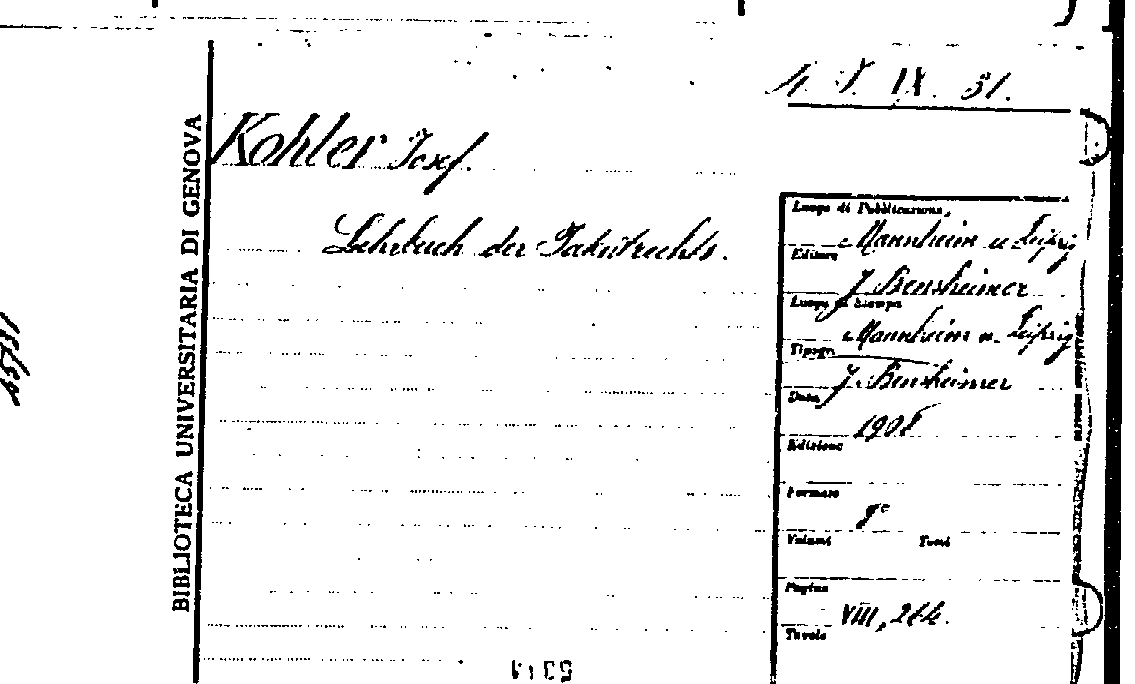 IX. 51.
BIBLIOTECA UNIVERSITARIA DI GENOVA
Kohler Josef.
Lehrbuch der Patentrechts.
Luogo di Pubblicazione,
Mannheim u Leipzig
Editore
J Bensheimer
Luogo di Stampa
Mannheim u. Leipzig
Tipogr.
J. Bensheimer
Data
1908
Edizione
Formato
8°
Volumi Tomi
Pagine
VIII, 264.
Tavole